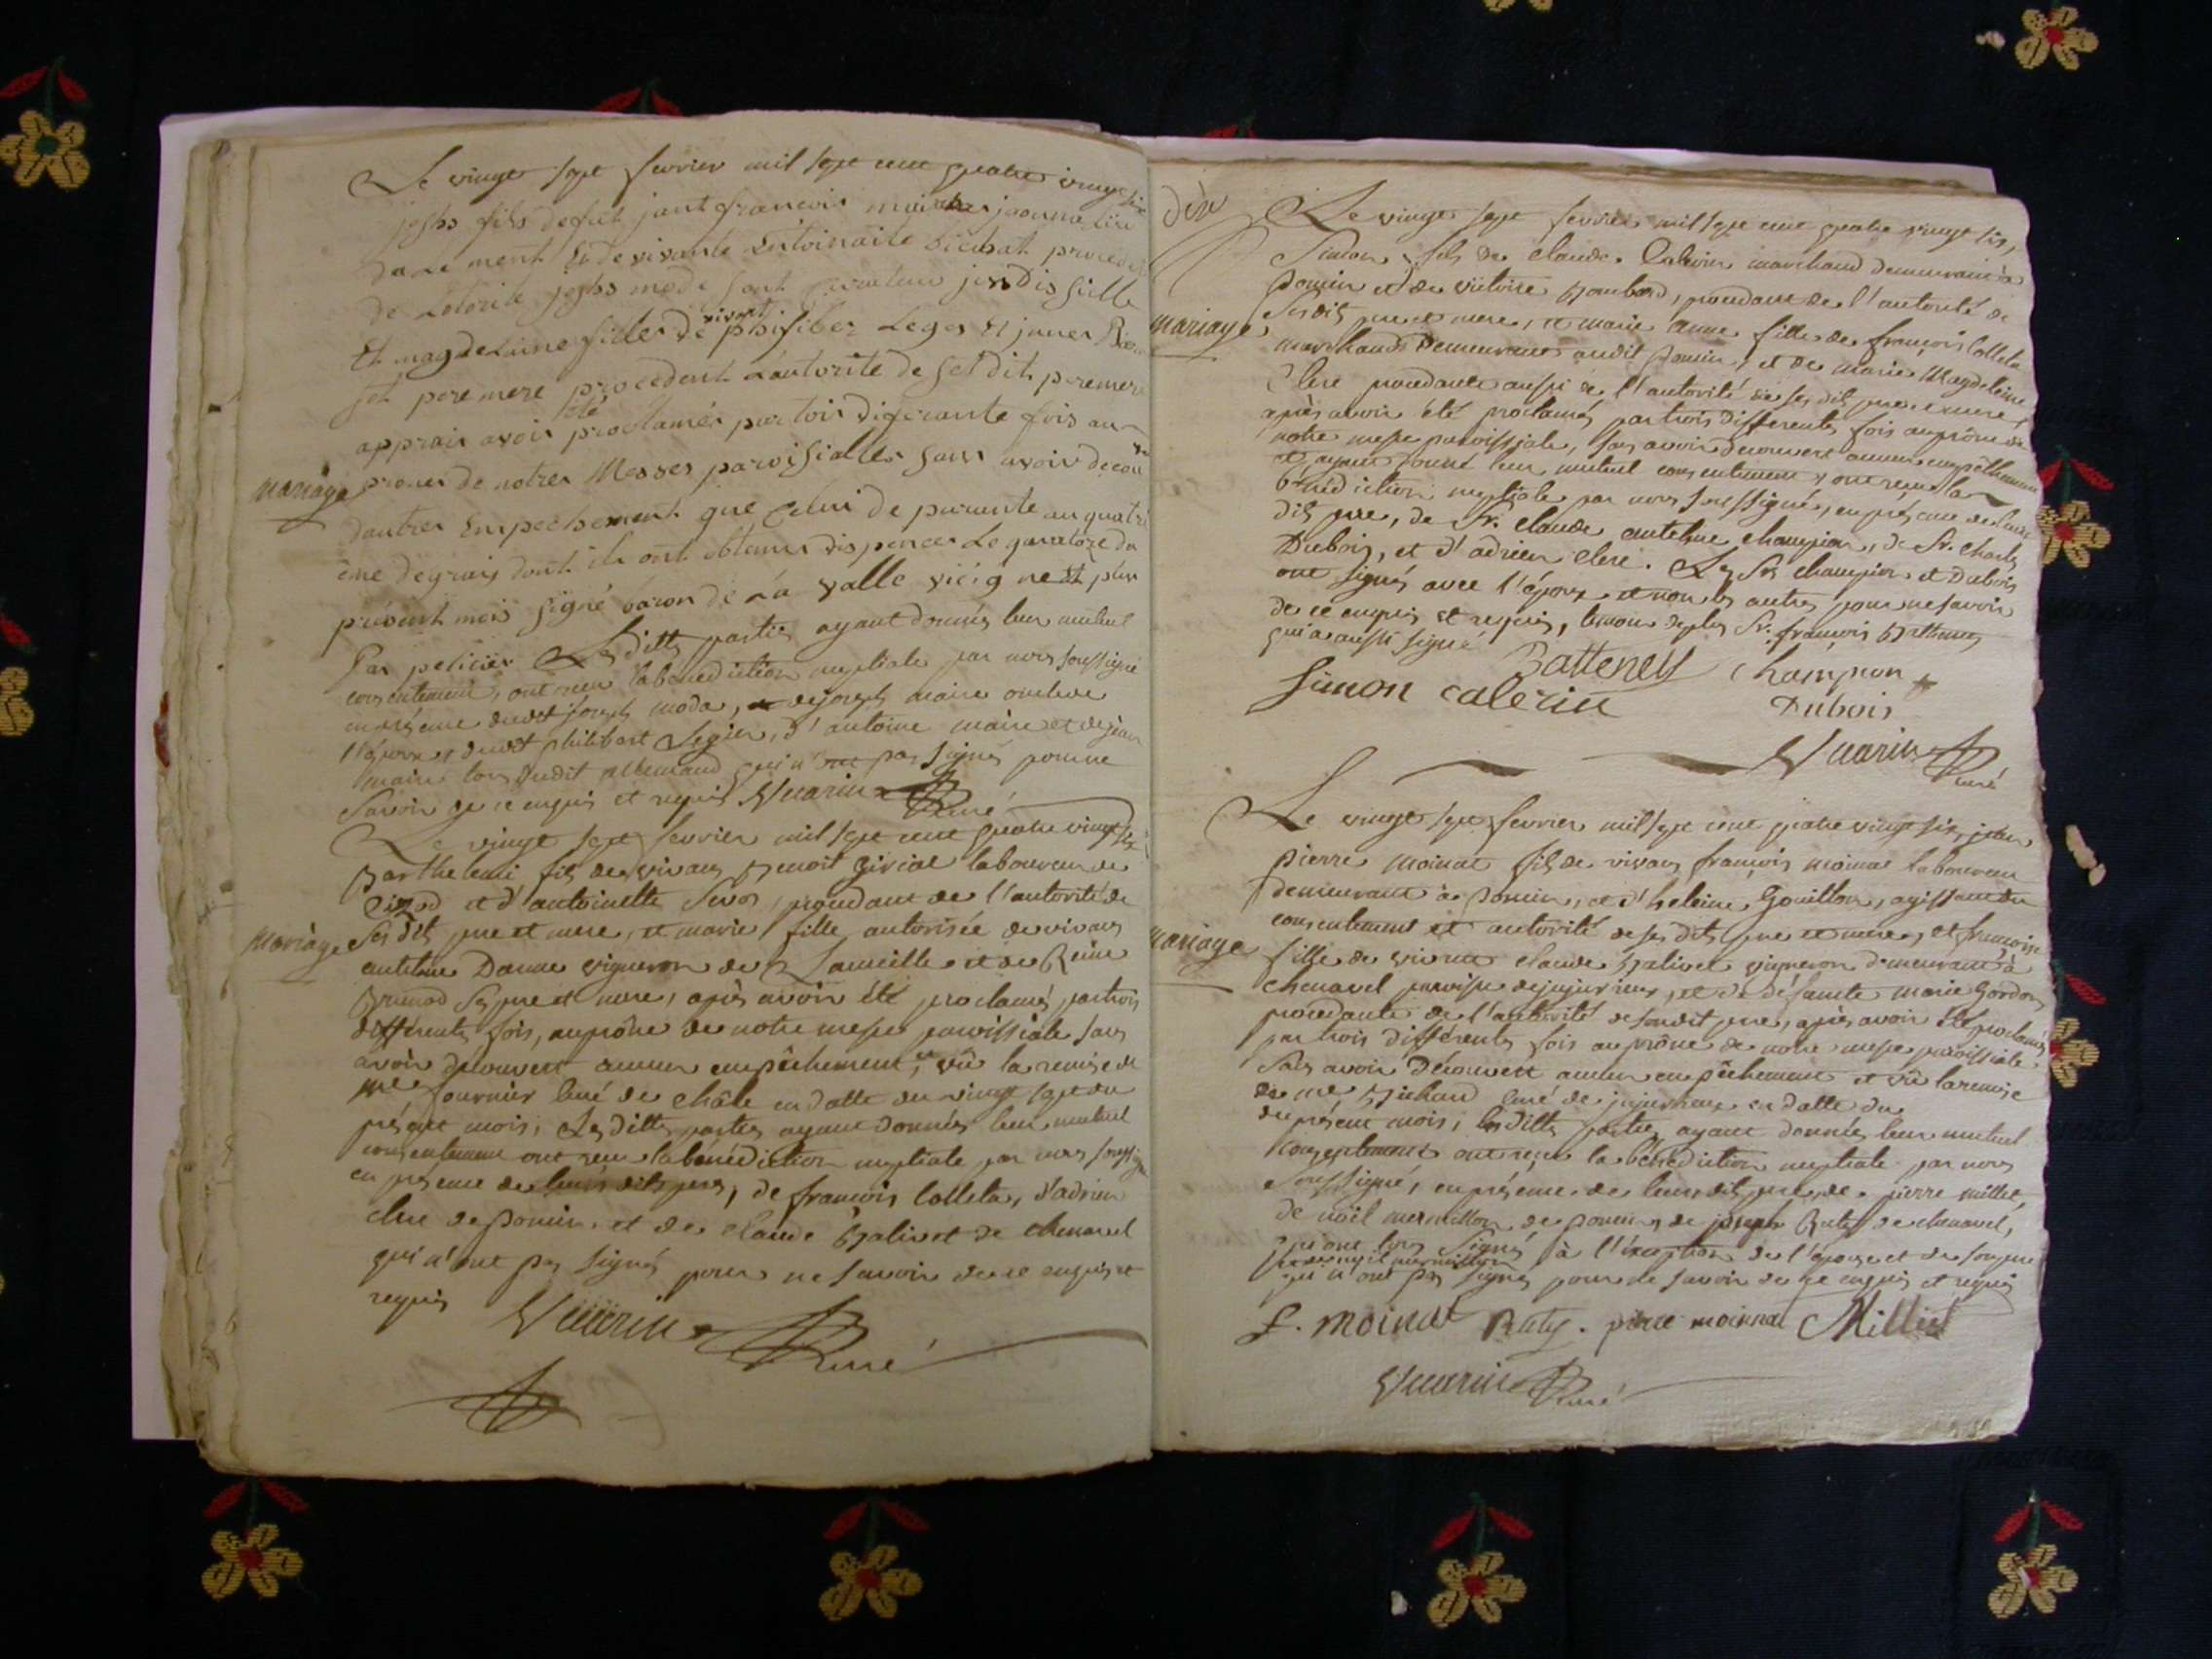 Le vingt sept fevrier mil sept cent quatre vingt six
joshs fils defut jant francois maire
da Le ment Et de vivante Entoinaite
de Lotorite joshs mode
Et magdelaine filles de vivant phifibez Leger Et janes
set pere mere procedent Lautorite de set dit pere mere
apprais avoir été proclamés par tois diferante fois au
mariage
prones de notres Messes paroisialles sans avoir decou
dautres Empechement que Celui de parante au quatri
eme degrais dont ils ont obtenu dispences Le quatorze du
présent mois signé baron de La valle vicig ne Et plus
Par Lesdittes parties ayant donnés leur mutuel
consentement, ont reçu la bénédiction nuptiale par nous soussigné
en présence dudit joseph moda, de joseph maire oncle de
l'époux, dudit philibert Legier, d'antoine maire et de jean
maire tous dudit allemand qui n'ont pas signés pour ne
savoir de ce enquis et requis Vuarin Curé
Le vingt sept fevrier mil sept cent quatre vingt six
Barthelemi fils de vivans Benoit Girial laboureur de
Cizod et d'antoinette procedant de l'autorité de
mariage
ses dits pere et mere, et marie fille autorisée de vivans
antelme Danne vigneron de et de Reine
Brunod ses pere et mere, après avoir été proclamés partrois
differents fois, au prône de notre messe paroissiale sans
avoir découvert aucun empêchement, et vû la remise de
me fournier Curé de Châle en datte du vingt sept du
présent mois, Lesdittes parties ayant donnés leur mutuel
consentement ont reçu la bénédiction nuptiale par nous soussigné
en présence de leurs dits peres, de françois Colleta, d'adrien
clerc de poncin, et de claude Balivet de chenavel
qui n'ont pas signés pour ne savoir de ce enquis et
requis Vuarin Curé
Le vingt sept fevrier mil sept cent quatre vingt six,
Simon, fils de Claude Calerin marchand demeurant à
poncin et de victoire Bombard, procedant de l'autorité de
mariage
ses dits pere et mere, et marie Anne fille de françois Colleta
marchand demeurant audit poncin, et de marie Magdeleine
Clerc procedante aussi de l'autorité de ses dits pere et mere,
après avoir été proclamés par trois differentes fois au prône de
notre messe paroissiale, sans avoir decouvert aucun empêchement
et ayant donné leur mutuel consentement, ont reçu la
bénédiction nuptiale par nous soussigné, en présence de leurs
dits pere, de Sr. Claude antelme champion, de Sr. Charles
Dubois, et d'adrien clerc. Les Srs champion et Dubois
ont signés avec l'époux et non les autres pour ne savoir
de ce enquis et requis, temoin de plus Sr. françois
qui a aussi signé
Batteney Champion
Simon Calerin Dubois
Vuarin Curé
Le vingt sept fevrier mil sept cent quatre vingt six, jean
pierre moinat fils de vivans françois moinat laboureur
demeurant à poncin, et d'heleine Gouillon, agissant du
consentement et autorité de ses dits pere et mere, et françoise
mariage
fille de vivant claude Balivet vigneron demeurant à
chenavel paroisse de jujurieux, et de défunte marie Gordon,
procedante de l'autorité de sondit pere, après avoir été proclamés
par trois différents fois au prône de notre messe paroissiale
sans avoir découvert aucun empêchement et vû la remise
de me Michaud Curé de jujurieux en datte du
du présent mois, lesdittes parties ayant donnés leur mutuel
consentement ont reçu la bénédiction nuptiale par nous
soussigné, en présence de leurs dits pere, de pierre millet,
de noël mermillon de poncin, de joseph Buty de chenavel,
qui ont tous signés à l'exception de l'épouse et de son pere
et de noël mermillon
qui n'ont pas signés pour ne savoir de ce enquis et requis
f. moinat Buty. pierre moinnat Milliet
Vuarin Curé